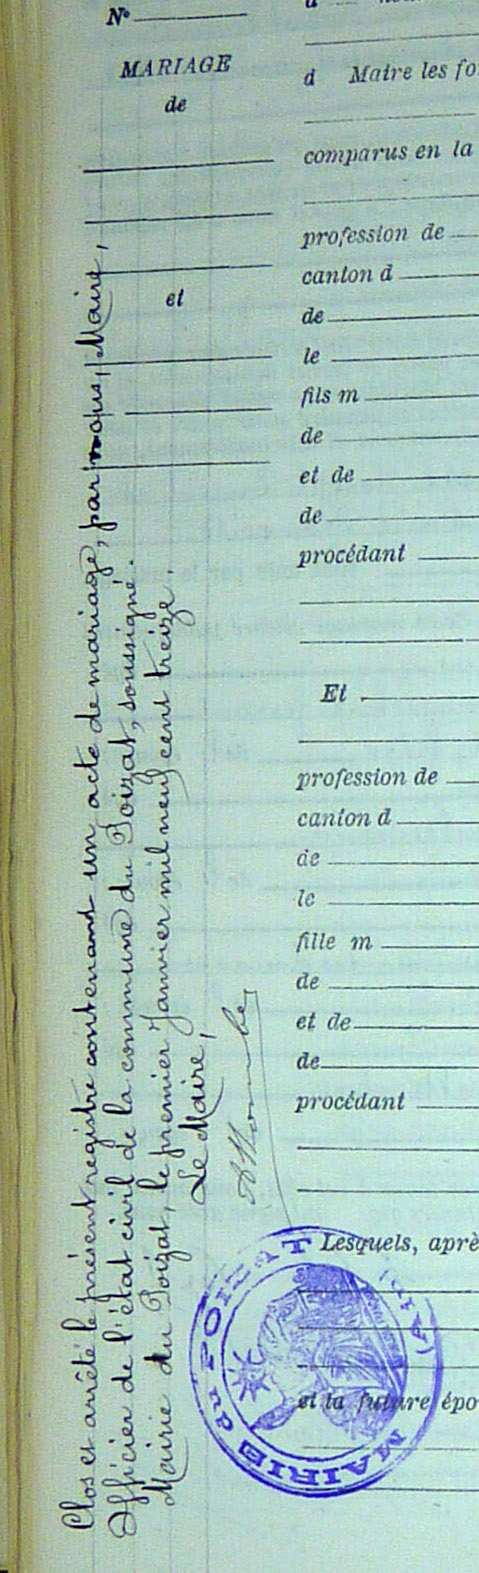 N°
MARIAGE
de
et
d
d Maire les fo
comparus en la
profession de
canton d
de
le
fils m
de
et de
de
procédant
Et
profession de
canton d
de
le
fille m
de
et de
de
procédant
Lesquels, aprè
et la future épo
Clos et arrêté le présent registre contenant un acte de mariage, par nous, Maire,
Officier de l'état civil de la commune du Poizat, soussigné.
Mairie du Poizat, le premier Janvier mil neuf cent treize
Le Maire,
MAIRIE du POIZAT
(Ain)